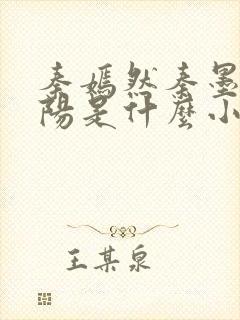 秦嫣然秦墨
陽是什麼小
王某泉